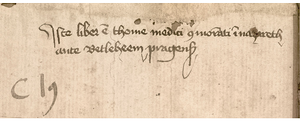 Iste liber ē thome medici ꝯmorāti ī nazareth
ante Betleheem pragenſ
C 19